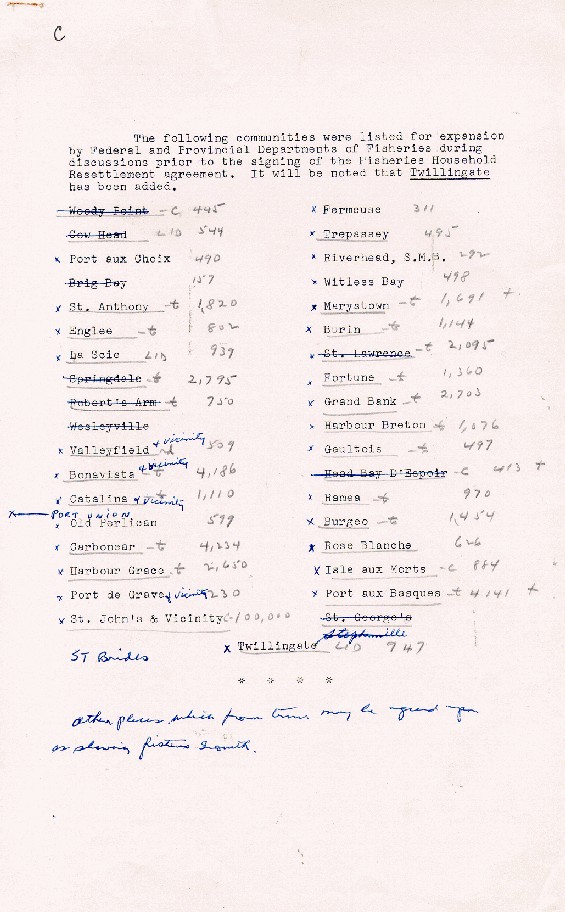 C
The following communities were listed for expension
by Federal and Provincial Departments of Fisheries during
discussions prior to the signing of the Fisheries Household
Resettlement agreement. It will be noted that Twillingate
has been added.
Woody Point - C 445
Cow Head LID 544
x Port aux Choix 490
Brig Bay 157
x St. Anthony - t 1,820
x Englee - t 802
x La Scie LID 939
Springdale - t 2,795
Robert's Arm - t 750
Wesleyville
x Valleyfield + vicinity 509
x Bonavista + vicinity - t 4,186
x Catalina + vicinity - t 1,110
x PORT UNION
x Old Perlican 599
x Carbonear - t 4,234
x Harbour Grace - t 2,650
x Port de Grave + vicinity 230
x St. John's & Vicinity C-100,000
ST Brides
x Fermeuse 311
x Trepassey 495
x Riverhead, S.M.B. 292
x Witless Bay 498
x Marystown - t 1,691 +
x Burin - t 1,144
x St. Lawrence - t 2,095
x Fortune - t 1,360
x Grand Bank - t 2,703
x Harbour Breton - t 1,076
x Gaultois - t 497
Head Bay D'Espoir - C 413 +
x Ramea - t 970
x Burgeo - t 1,454
x Rose Blanche 626
x Isle aux Morts - C 884
x Port aux Basques - t 4,141 +
St. George's
Stephenville
x Twillingate LID 747
* * * *
other places which from time may be agreed upon
as showing fisheries growth.